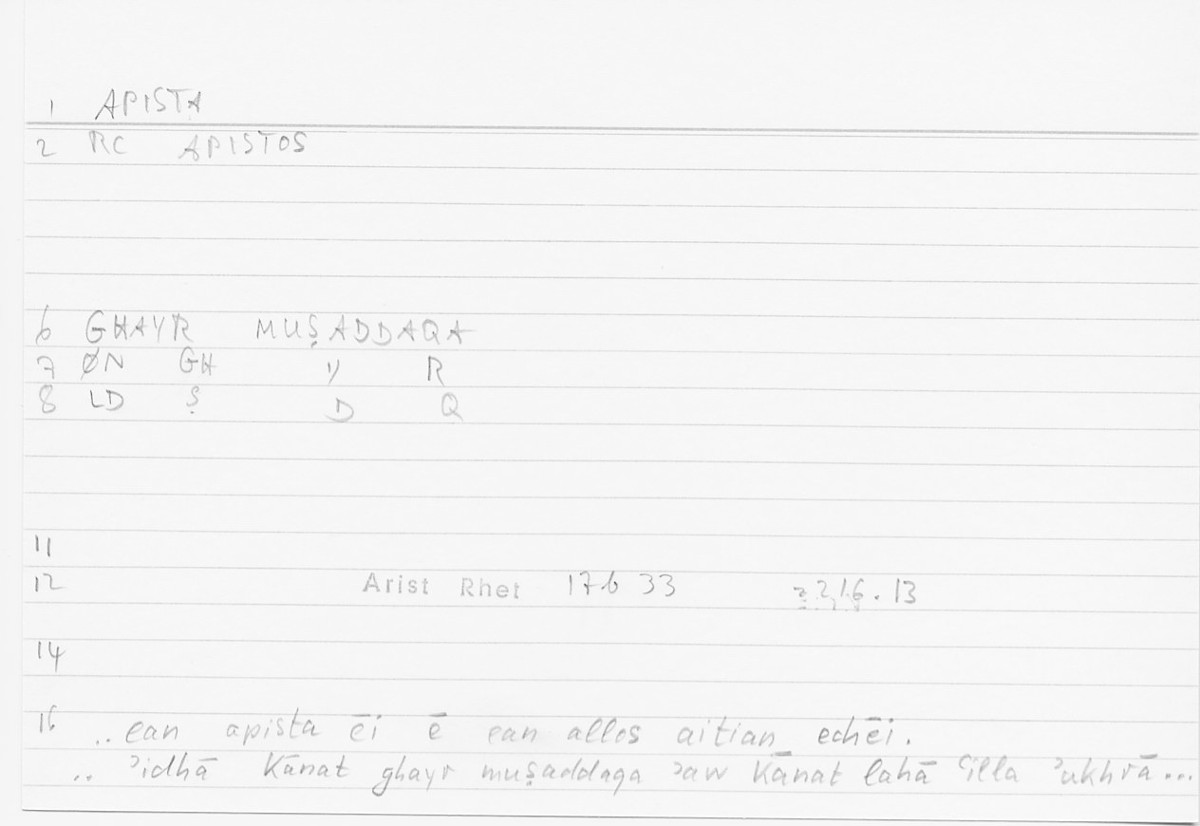 1 APISTA
2 RC APISTOS
6 GHAYR MUṢADDAQA
7 ØN GH Y R
8 LD Ṣ D Q
11
12 Arist Rhet 17b 33 216.13
14
16 .. ean apista ēi ē ean allos aitian echēi.
.. ʾidhā kānat ghayr muṣaddaqa ʾaw kānat lahā ʿilla ʾukhrā...